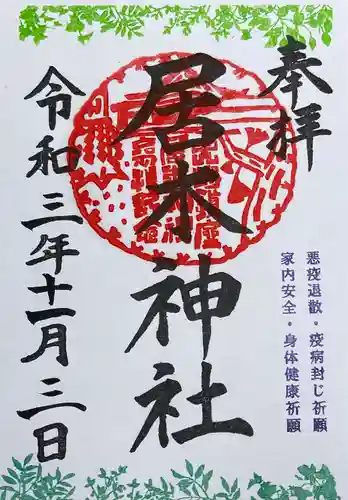 奉拝
居木神社
令和三年十一月三日
悪疫退散・疫病封じ祈願
家内安全・身体健康祈願